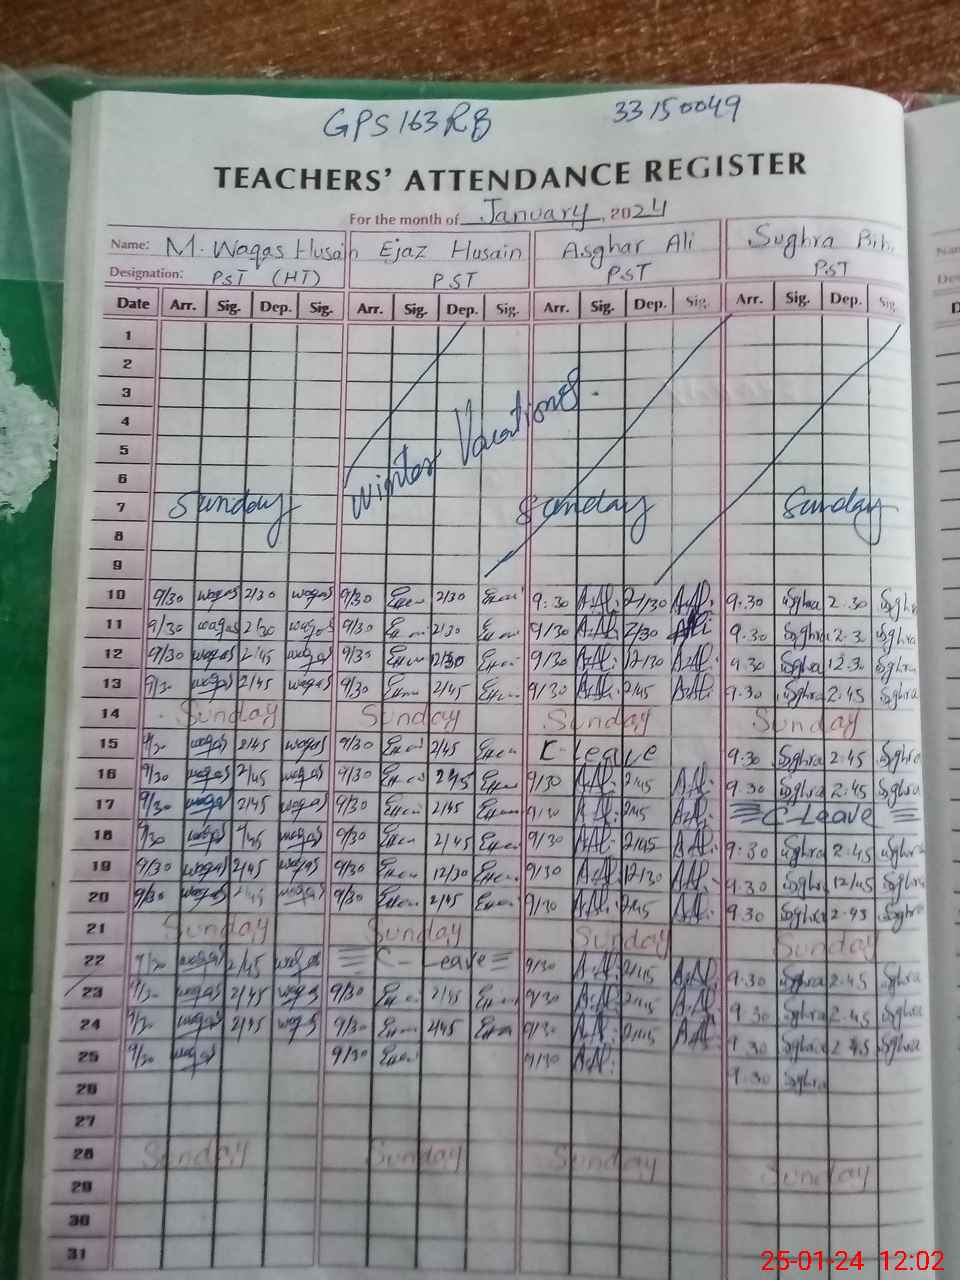 GPS 163 RB 33150049
TEACHERS' ATTENDANCE REGISTER
For the month of January, 2024
Name: M. Waqas Husain Ejaz Husain Asghar Ali Sughra Bibi
Designation: PST (HT) PST PST PST
Date Arr. Sig. Dep. Sig. Arr. Sig. Dep. Sig. Arr. Sig. Dep. Sig. Arr. Sig. Dep. Sig.
1
2
3
4
Winter Vacations.
5
6
7 Sunday Sunday Sunday
8
9
10 9/30 waqas 2/30 waqas 9/30 2/30 9:30 A.Ali 2/30 A.Ali 9.30 Sughra 2.30 Sughra
11 9/30 waqas 2/30 waqas 9/30 2/30 9/30 A.Ali 2/30 A.Ali 9.30 Sughra 2.3 Sughra
12 9/30 waqas 2/45 waqas 9/30 12/30 9/30 A.Ali 12/30 A.Ali 9.30 Sughra 12.30 Sughra
13 9/30 waqas 2/45 waqas 9/30 2/45 9/30 A.Ali 2/45 A.Ali 9.30 Sughra 2.45 Sughra
14 Sunday Sunday Sunday Sunday
15 9/30 waqas 2/45 waqas 9/30 2/45 C-Leave 9.30 Sughra 2.45 Sughra
16 9/30 waqas 2/45 waqas 9/30 2/45 9/30 A.Ali 2/45 A.Ali 9.30 Sughra 2.45 Sughra
17 9/30 waqas 2/45 waqas 9/30 2/45 9/30 A.Ali 2/45 A.Ali C-Leave
18 9/30 waqas 2/45 waqas 9/30 2/45 9/30 A.Ali 2/45 A.Ali 9.30 Sughra 2.45 Sughra
19 9/30 waqas 2/45 waqas 9/30 12/30 9/30 A.Ali 12/30 A.Ali 9.30 Sughra 12/45 Sughra
20 9/30 waqas 2/45 waqas 9/30 2/45 9/30 A.Ali 2/45 A.Ali 9.30 Sughra 2.45 Sughra
21 Sunday Sunday Sunday Sunday
22 9/30 waqas 2/45 waqas C-Leave 9/30 A.Ali 2/45 A.Ali 9.30 Sughra 2.45 Sughra
23 9/30 waqas 2/45 waqas 9/30 2/45 9/30 A.Ali 2/45 A.Ali 9.30 Sughra 2.45 Sughra
24 9/30 waqas 2/45 waqas 9/30 2/45 9/30 A.Ali 2/45 A.Ali 9.30 Sughra 2.45 Sughra
25 9/30 waqas 9/30 9/30 A.Ali 9.30 Sughra
26
27
28 Sunday Sunday Sunday Sunday
29
30
31
25-01-24 12:02